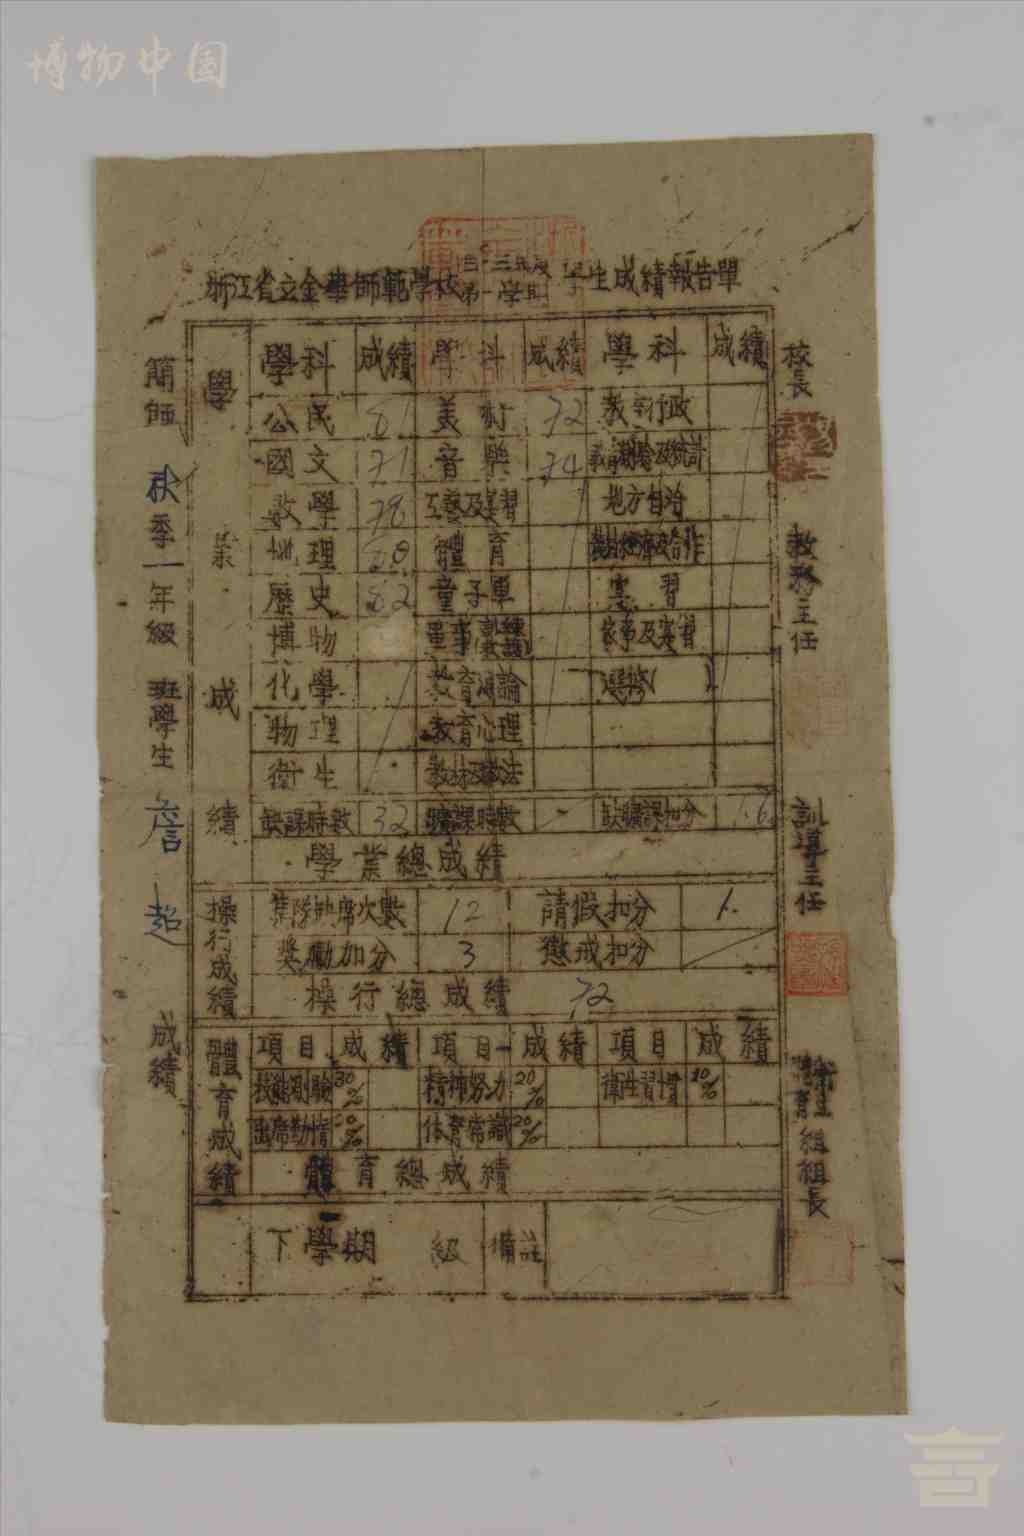 博物中国
浙江省立金華師範學校 三十三年度 第一學期 學生成績報告單
簡師 秋季一年級 班學生 詹超 成績
學業成績
學科 成績 學科 成績 學科 成績
公民 81 美術 72 教育行政
國文 71 音樂 74 教育測驗及統計
數學 78 工藝及實習 地方自治
地理 體育 農村經濟及合作
歷史 82 童子軍 實習
博物 軍事訓練 家事及實習
化學 教育通論 選修( )
物理 教育心理
衛生 教材及教法
缺課時數 32 曠課時數 缺曠課扣分 1.6
學業總成績
操行成績
集隊缺席次數 12 請假扣分 1.
獎勵加分 3 懲戒扣分
操行總成績 72
體育成績
項目 成績 項目 成績 項目 成績
技能測驗 30% 精神努力 20% 衛生習慣 10%
出席勤惰 20% 体育常識 20%
體育總成績
下學期 級 備註
校長
教務主任
訓導主任
組組長
言